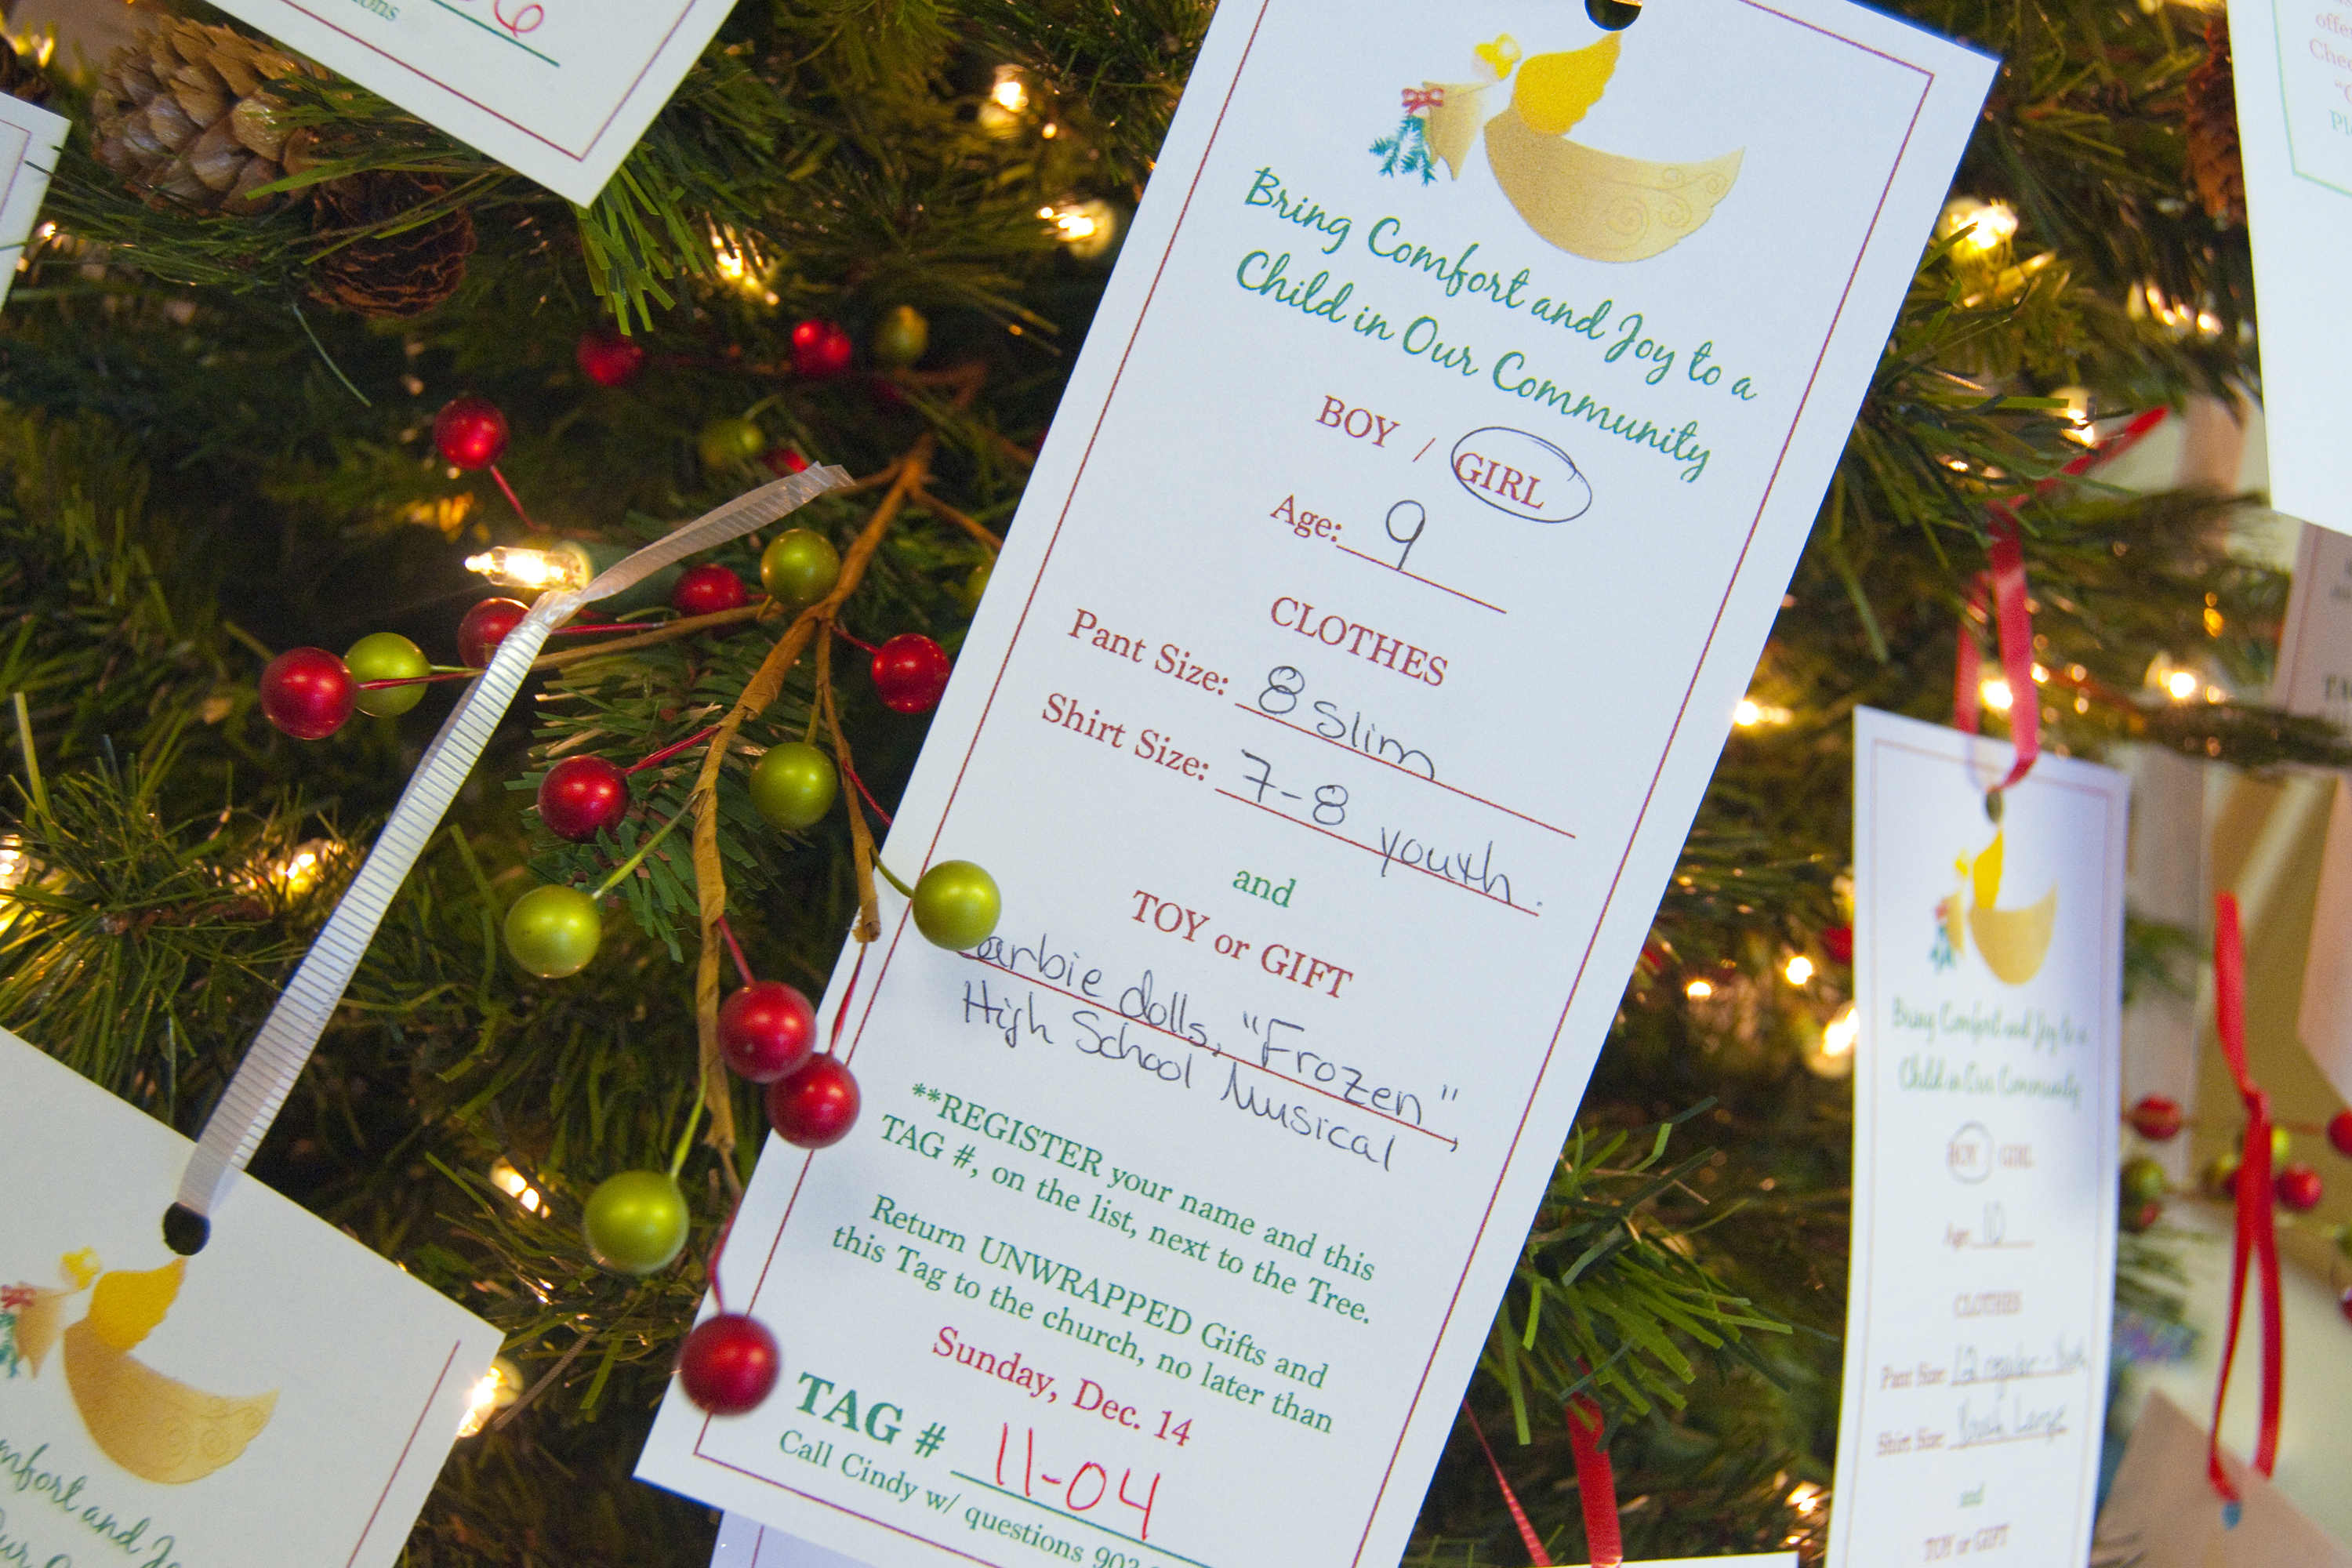 Bring Comfort and Joy to a
Child in Our Community
BOY / GIRL
Age: 9
CLOTHES
Pant Size: 8 slim
Shirt Size: 7-8 youth.
and
TOY or GIFT
arbie dolls, "Frozen",
High School Musical
**REGISTER your name and this
TAG #, on the list, next to the Tree.
Return UNWRAPPED Gifts and
this Tag to the church, no later than
Sunday, Dec. 14
TAG # 11-04
Call Cindy w/ questions 903
Bring Comfort and Joy to a
Child in Our Community
BOY GIRL
Age: 10
CLOTHES
Pant Size: 12 regular -
Shirt Size: Youth Large
and
TOY or GIFT
mfort and Jo
Our
ions
6
offe
Chec
Pl